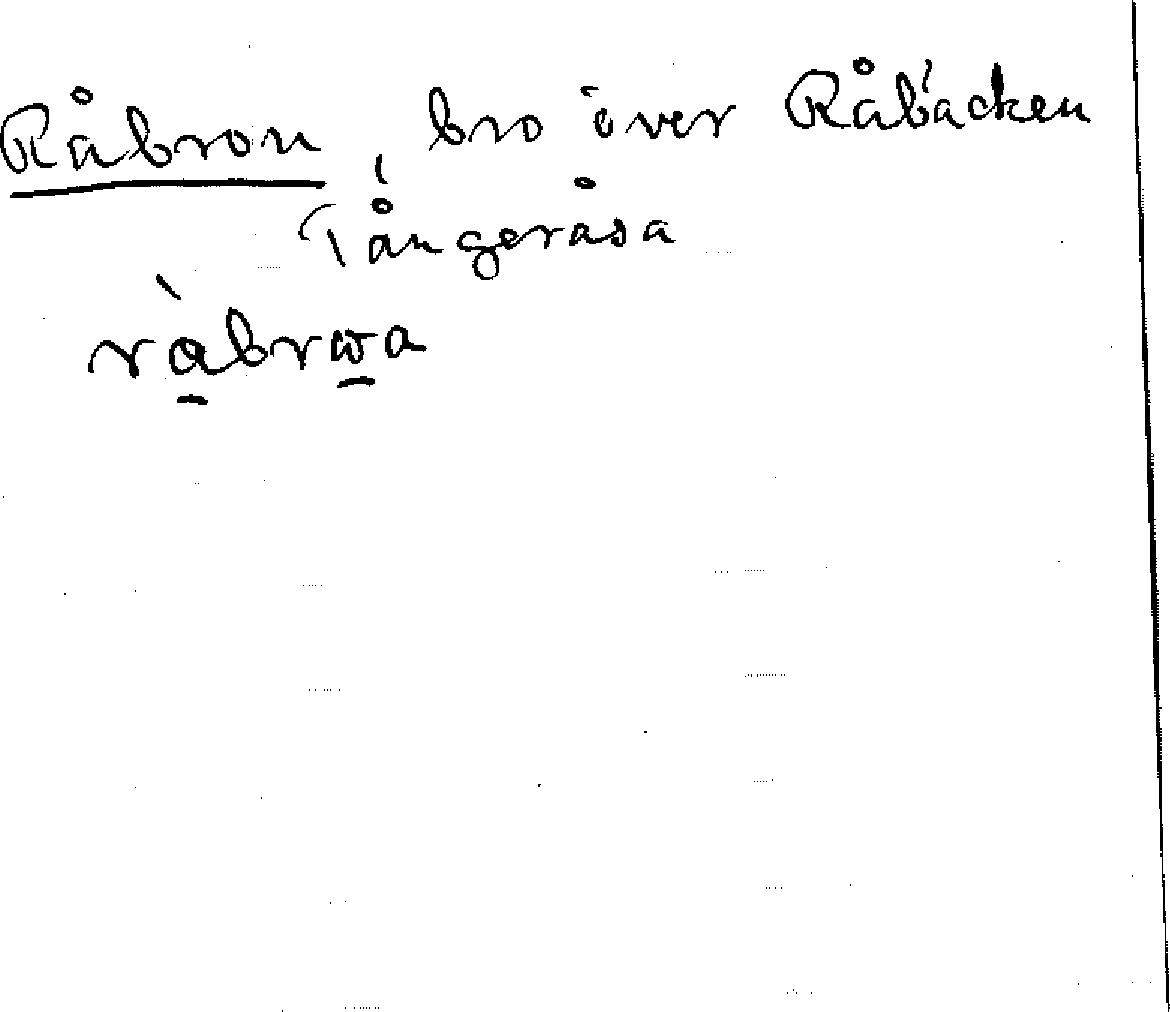 Råbron, bro över Råbäcken
Tångeråsa
ràbrωa